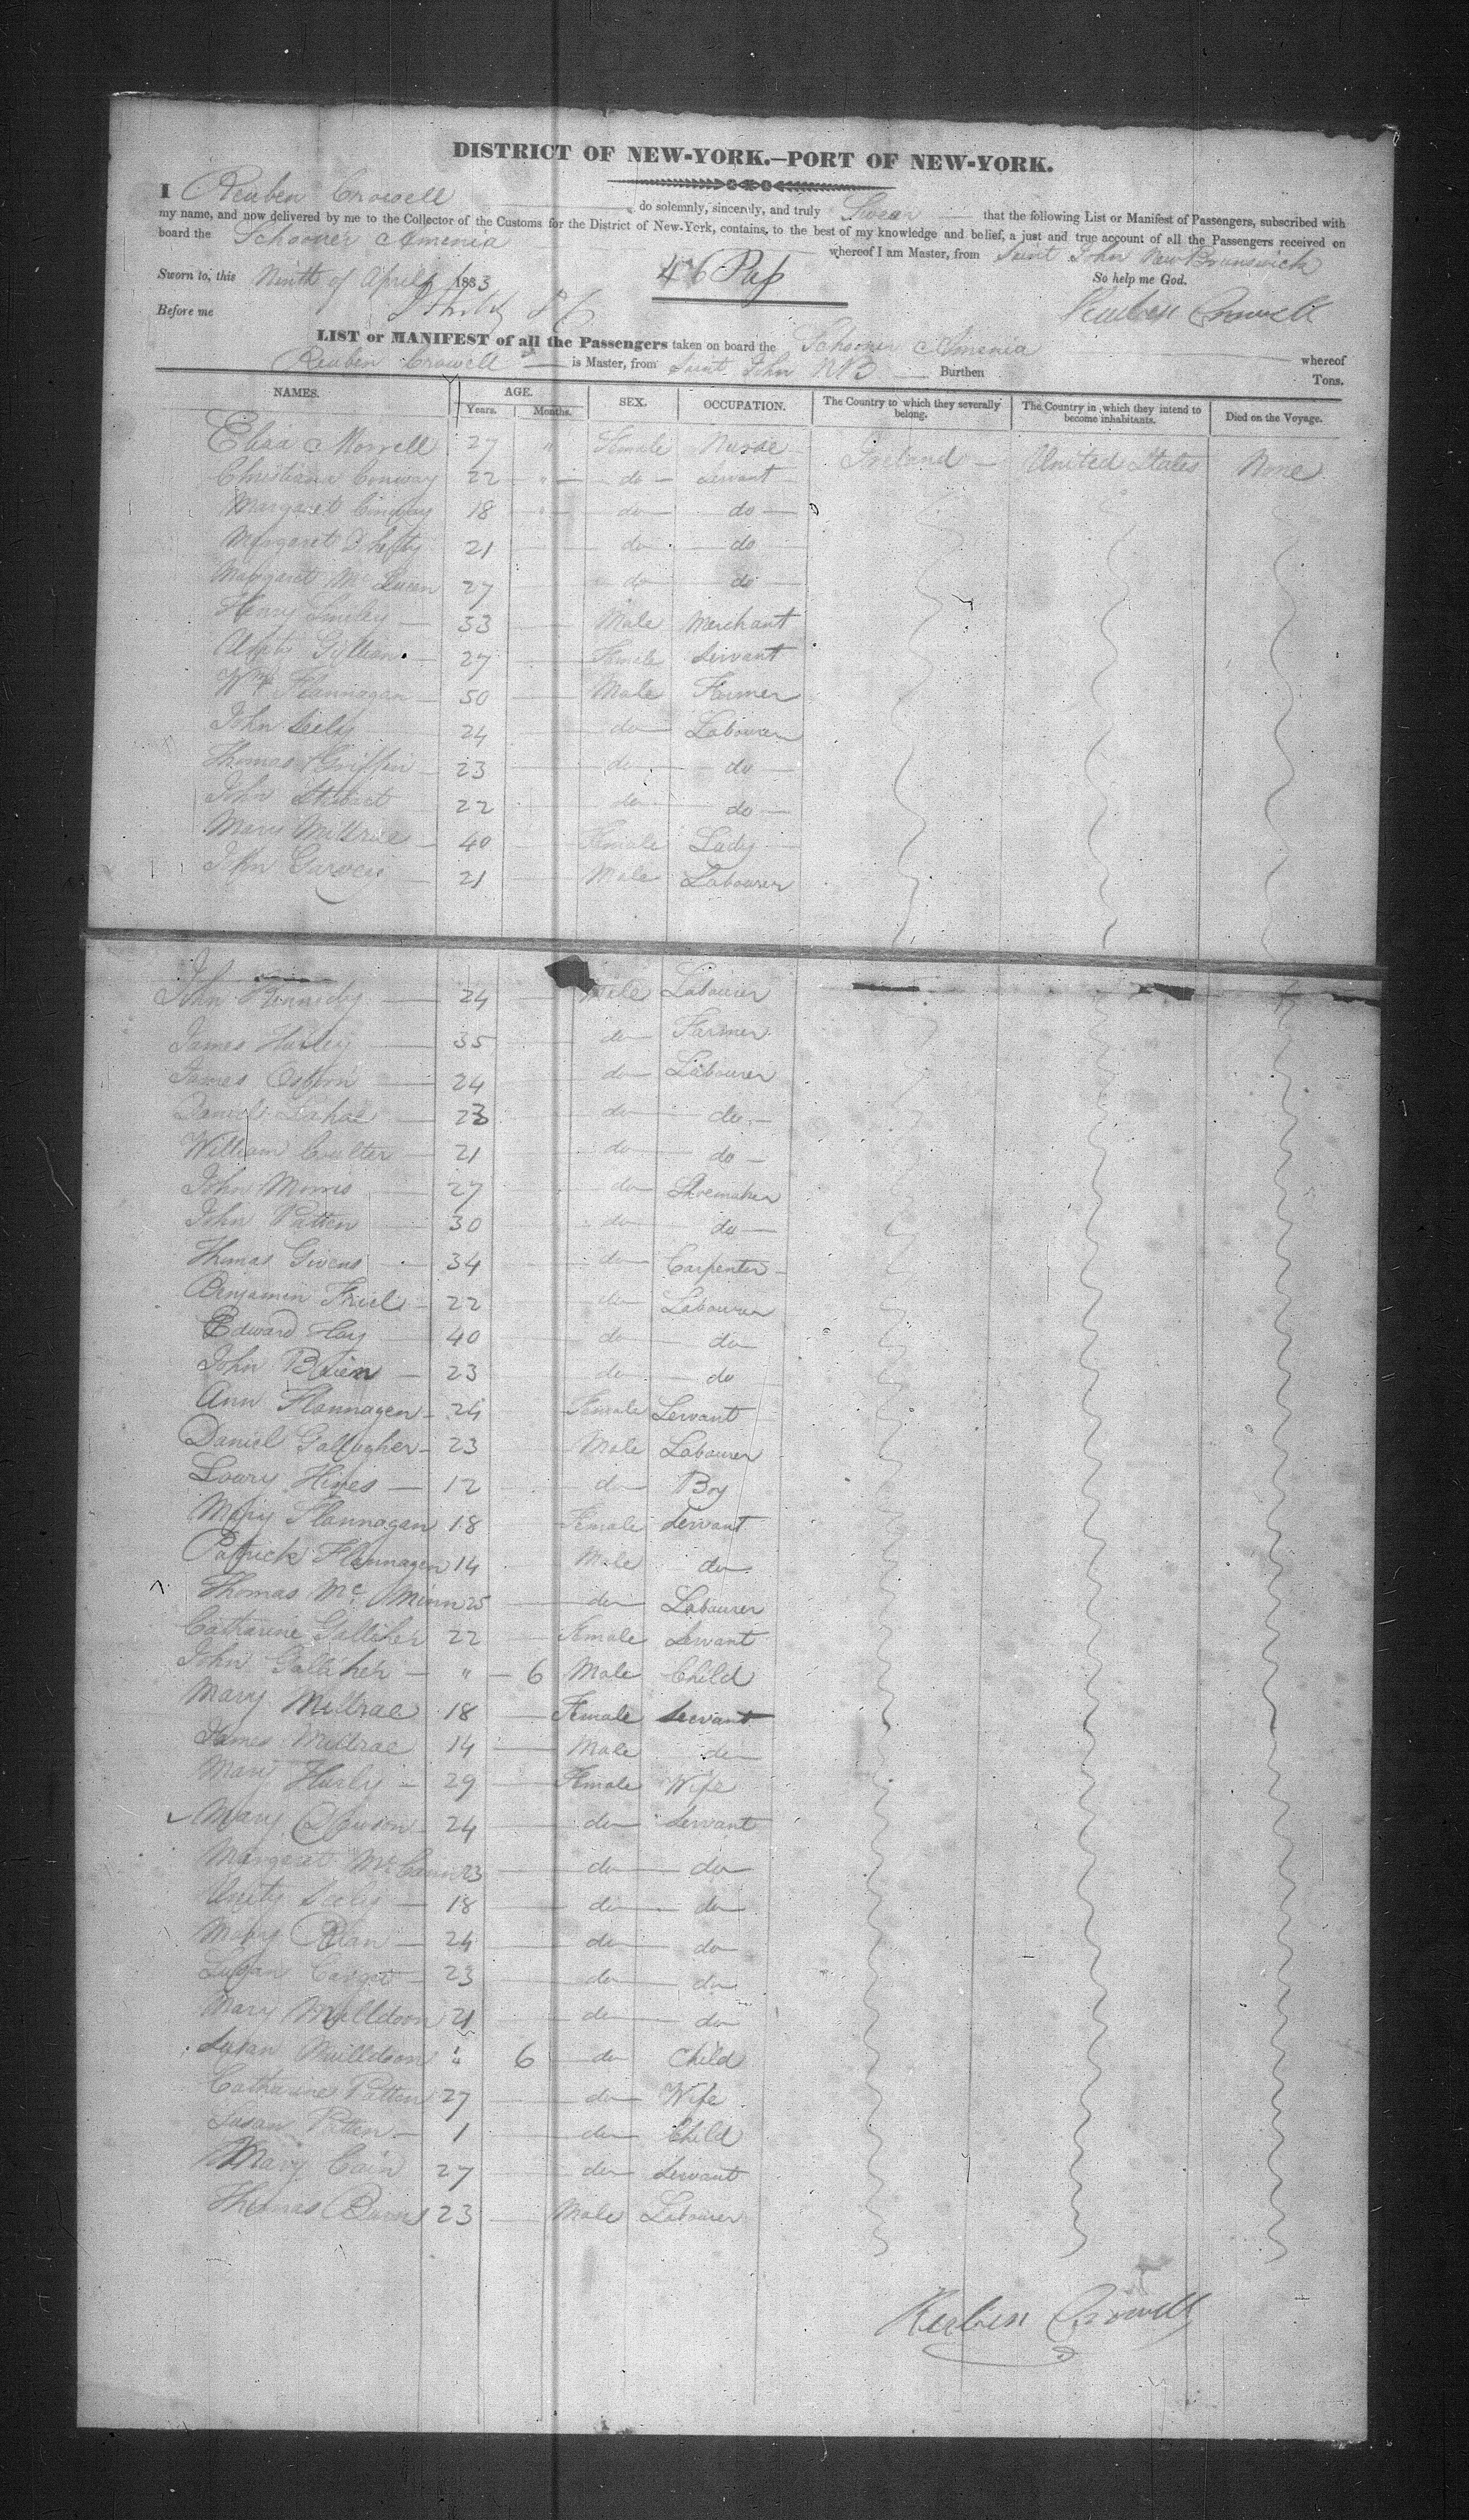 DISTRICT OF NEW-YORK.—PORT OF NEW-YORK.
I Reuben Crowell do solemnly, sincerely, and truly Swear that the following List or Manifest of Passengers, subscribed with
my name, and now delivered by me to the Collector of the Customs for the District of New-York, contains, to the best of my knowledge and belief, a just and true account of all the Passengers received on
board the Schooner Amenia whereof I am Master, from Saint John New Brunswick
Sworn to, this Ninth of April 1833 46 Pas So help me God.
Before me Reuben Crowell
LIST or MANIFEST of all the Passengers taken on board the Schooner Amenia whereof
Reuben Crowell is Master, from Saint John NB Burthen Tons.
NAMES. AGE. Years. Months. SEX. OCCUPATION. The Country to which they severally belong. The Country in which they intend to become inhabitants. Died on the Voyage.
Eliza Morrell 27 " Female Nurse Ireland United States None
Christiana Conway 22 " do Servant
Margaret 18 " do do
Margaret 21 do do
Margaret 27 do do
Henry Smiley 33 Male Merchant
27 Female Servant
Wm Flannagan 50 Male Farmer
John Seely 24 do Labourer
Thomas Griffin 23 do do
John Stewart 22 do do
Mary 40 Female Lady
John Garvey 21 Male Labourer
John Kennedy 24 Male Labourer
James Hurley 35 do Farmer
James 24 do Labourer
Daniel 23 do do
William Coulter 21 do do
John Morris 27 do Shoemaker
John Patten 30 do do
Thomas Givens 34 do Carpenter
Benjamin Friel 22 do Labourer
Edward Hay 40 do do
John 23 do do
Ann Flannagen 24 Female Servant
Daniel Gallagher 23 Male Labourer
Lowry Hines 12 do Boy
Mary Flannagan 18 Female Servant
Patrick Flannagen 14 Male do
Thomas Mc Minn 25 do Labourer
Catharine Galliher 22 Female Servant
John Galliher " 6 Male Child
Mary 18 Female Servant
James 14 Male do
Mary Hurly 29 Female Wife
Mary 24 do Servant
Margaret 23 do do
Unity Seely 18 do do
Mary 24 do do
Susan 23 do do
Mary Mulldoon 21 do do
Susan Mulldoon " 6 do Child
Catharine Patten 27 do Wife
Susan Patten 1 do Child
Mary Cain 27 do Servant
Thomas 23 Male Labourer
Reuben Crowell